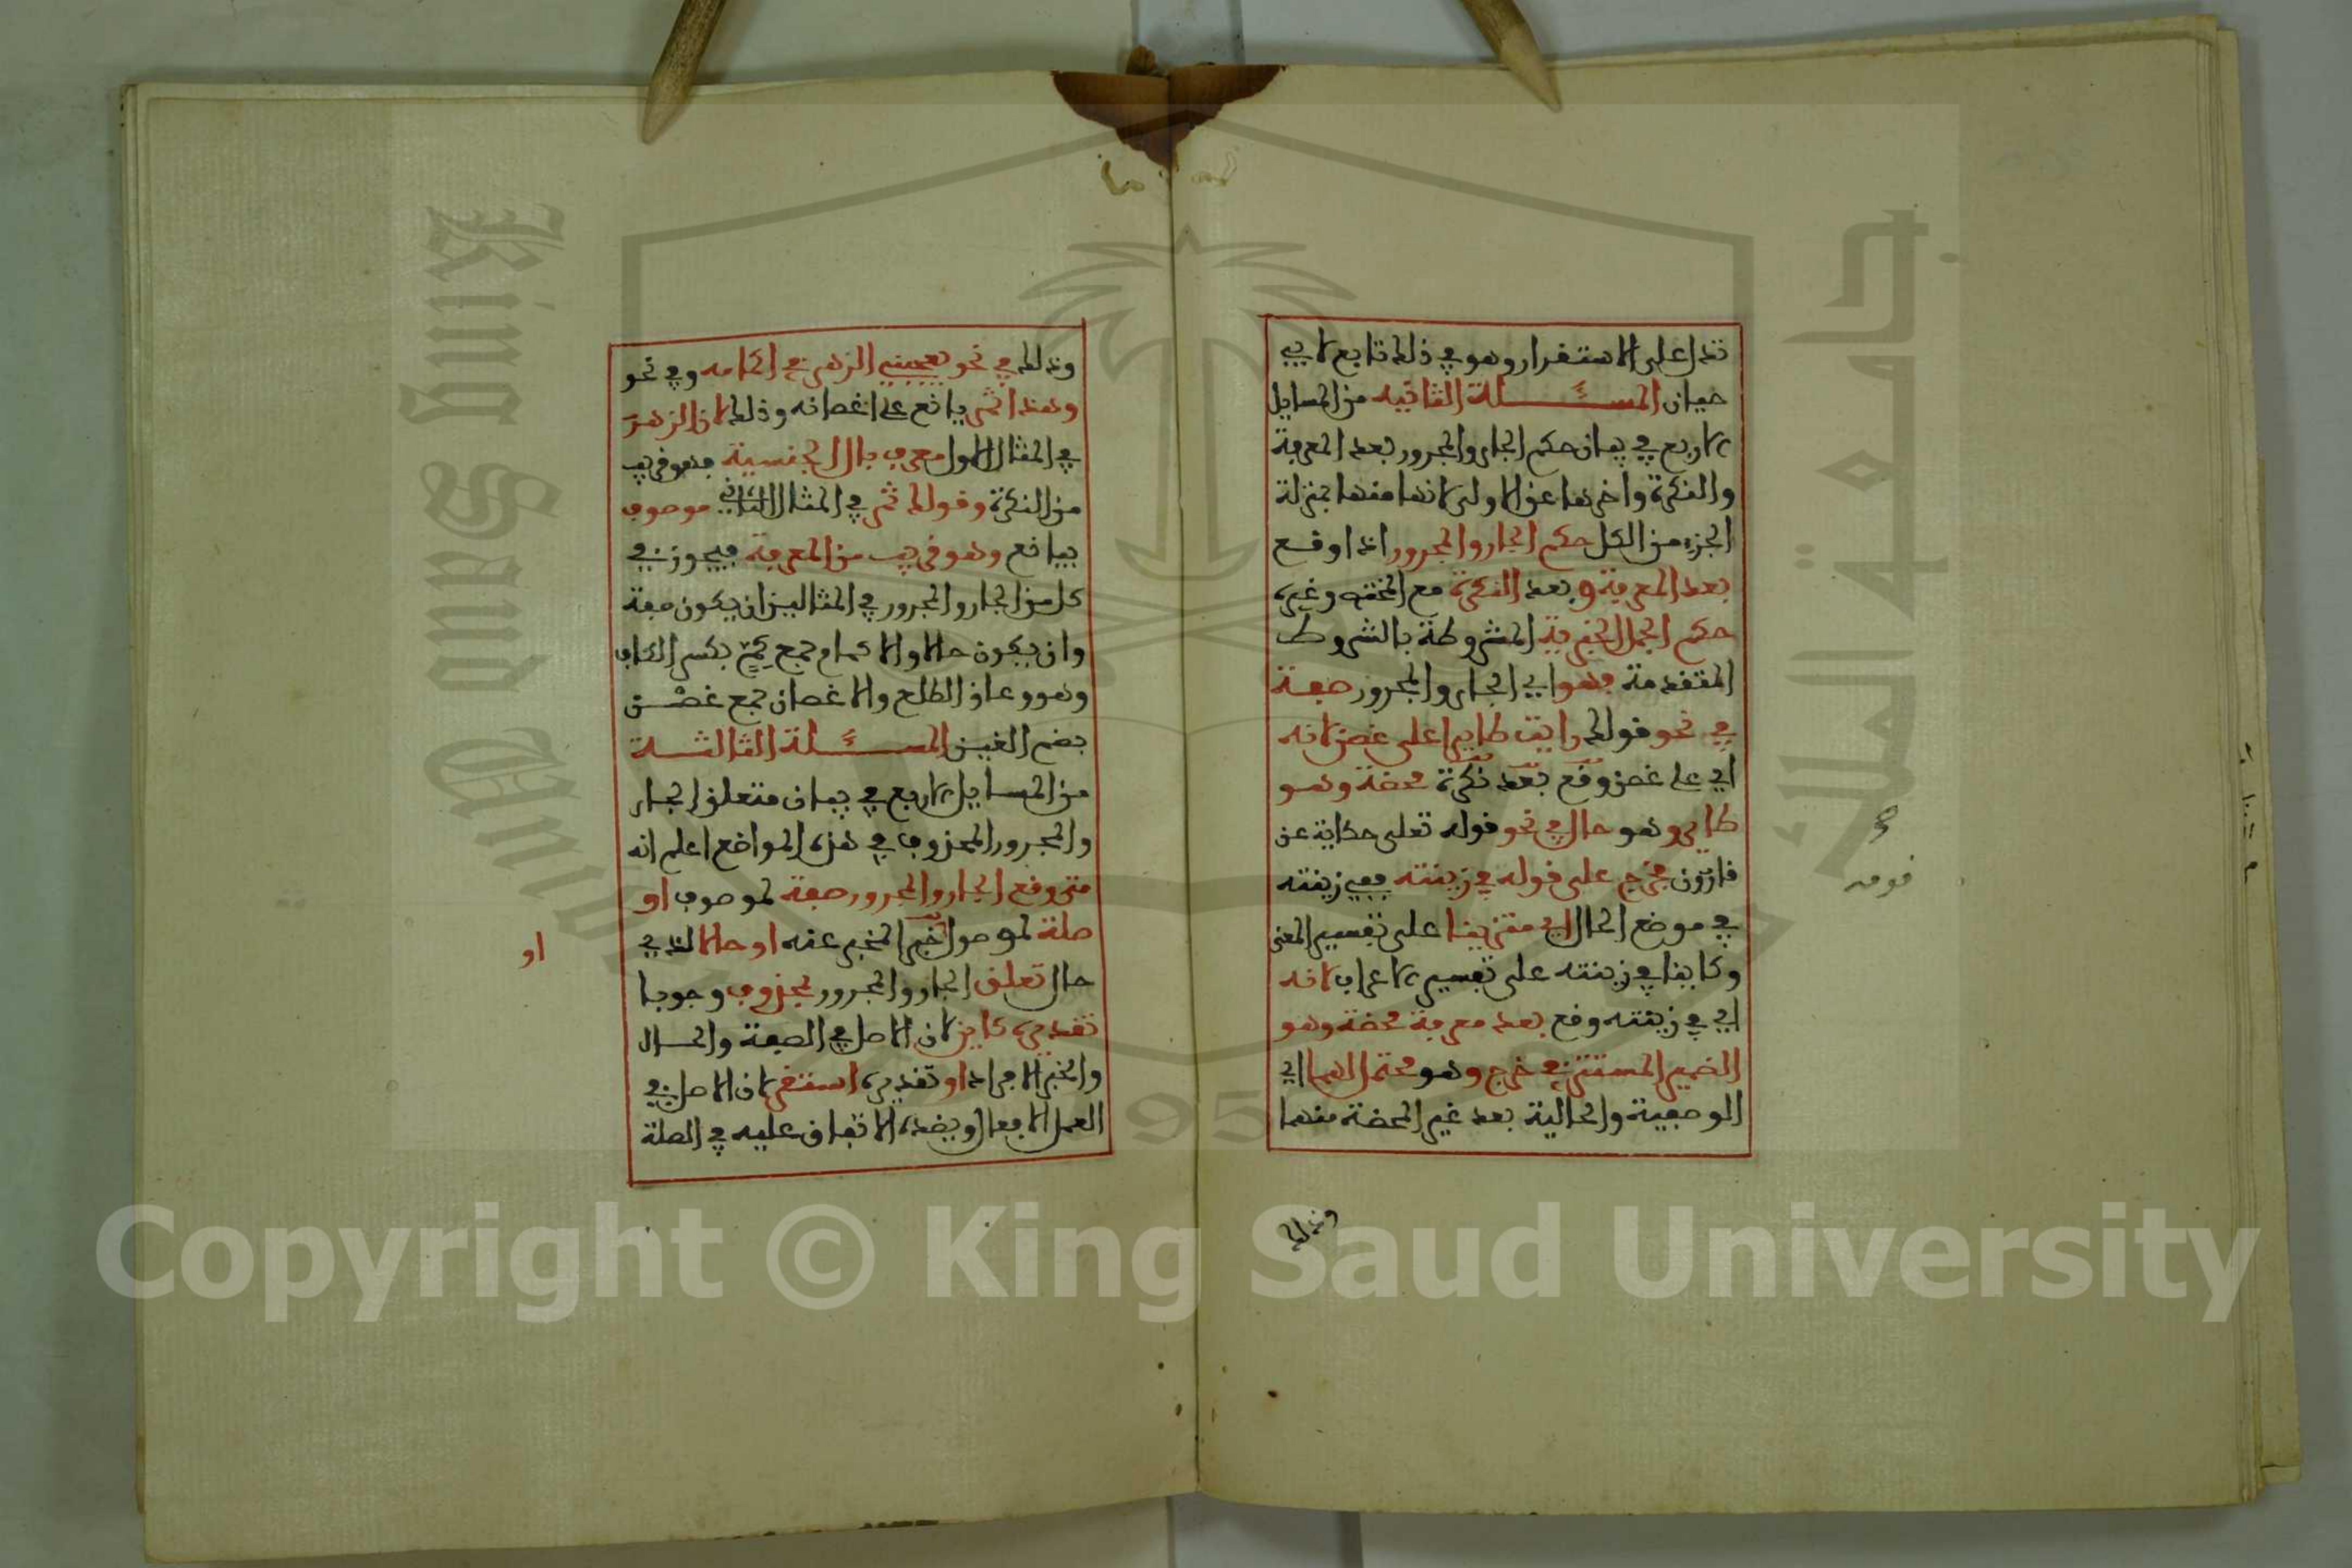 تدل على الاستقرار وهو في ذلك تابع لابي
حيان المسئلة الثانيه من المسايل
الاربع في بيان حكم الجار والمجرور بعد المعرفة
والنكرة واخرها عن الاولى لانها منها بمنزلة
الجزء من الكل حكم الجار والمجرور اذا وقع
بعد المعرفة وبعد النكرة مع المحضه وغيره
حكم الجمل الخبرية المشروطة بالشروط
المتقدمة فهو اي الجار والمجرور صفة
في نحو قولك رايت طايرا على غصن لانه
اي على غصن وقع بعد نكرة محضة وهو
طايرا وهو حال في نحو قوله تعلى حكاية عن
قارون فخرج على قومه في زينته ففي زينته
في موضع الحال اي متزينا على تفسير المعنى
وكاينا في زينته على تفسير الاعراب لانه
اي في زينته وقع بعد معرفة محضة وهو
الضمير المستتر في خرج وهو محتمل لهما اي
الوصفية والحالية بعد غير المحضة منهما
وذلك
صح
قومه
وذلك في نحو يعجبني الزهر في اكمامه وفي نحو
وهذا ثمر يانع على اغصانه وذلك لان الزهر
في المثال الاول معرف بال الجنسية فهو قريب
من النكرة وقولك ثمر في المثال الثاني موصوف
بيانع وهو قريب من المعرفة فيجوز في
كل من الجار والمجرور في المثالين ان يكون صفة
وان يكون حالا والاكمام جمع كم بكسر الكاف
وهو وعاء الطلع والاغصان جمع غصن
بضم الغين المسئلة الثالثة
من المسايل الاربع في بيان متعلق الجار
والمجرور المحذوف في هذه المواضع اعلم انه
متى وقع الجار والمجرور صفة لموصوف او
صلة لموصول او خبرا لمخبر عنه او حالا لذي
حال تعلق الجار والمجرور بمحذوف وجوبا
تقديره كاين لان الاصل في الصفة والحال
والخبر الافراد او تقديره استقر لان الاصل في
العمل الافعال ويقصده الاتفاق عليه في الصلة
او
Copyright © King Saud University